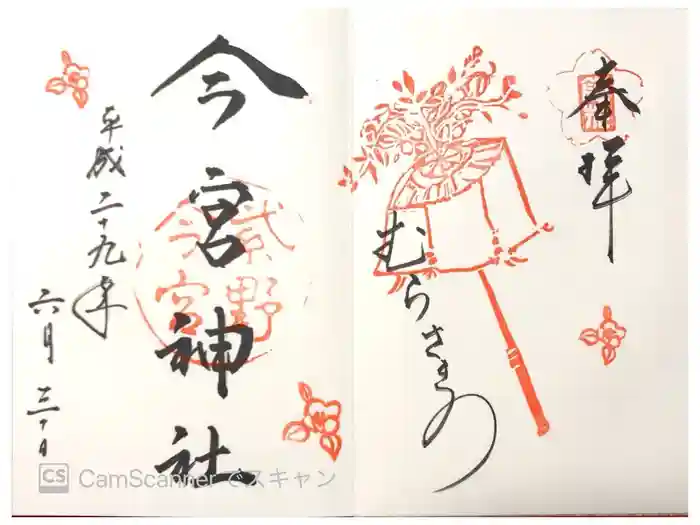 奉拝
むらさきの
今宮神社
平成二十九年
六月三十日
紫野
今宮
CS CamScanner でスキャン